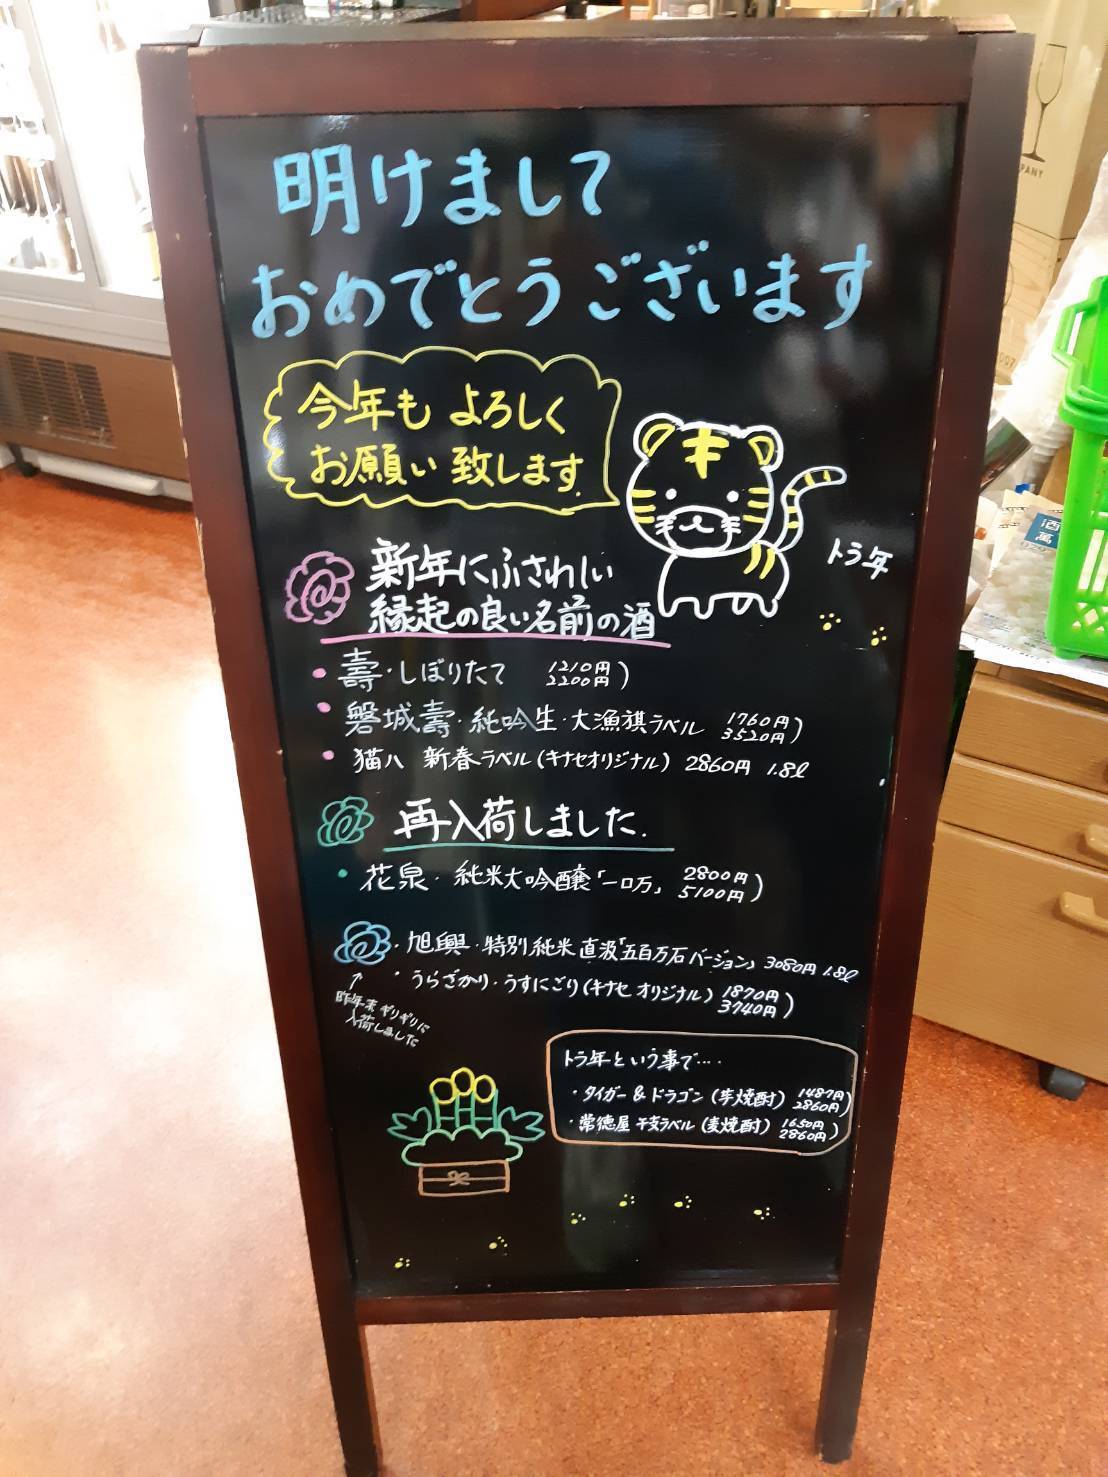 明けまして
おめでとうございます
今年も よろしく
お願い 致します.
トラ年
新年にふさわしい
縁起の良い名前の酒
・壽・しぼりたて 1210円
2200円)
・磐城壽・純吟生・大漁旗ラベル 1760円
3520円)
・猫八 新春ラベル(キナセオリジナル) 2860円 1.8ℓ
再入荷しました.
・花泉・純米大吟醸「一ロ万」 2800円
5100円)
・旭興・特別純米 直汲「五百万石バージョン」 3080円 1.8ℓ
・うらざかり・うすにごり(キナセ オリジナル) 1870円
3740円)
↑
昨年末 ギリギリに
入荷しました
トラ年という事で....
・タイガー & ドラゴン(芋焼酎) 1487円
2860円)
・常徳屋 干支ラベル(麦焼酎) 1650円
2860円)
PANY
酒
萬